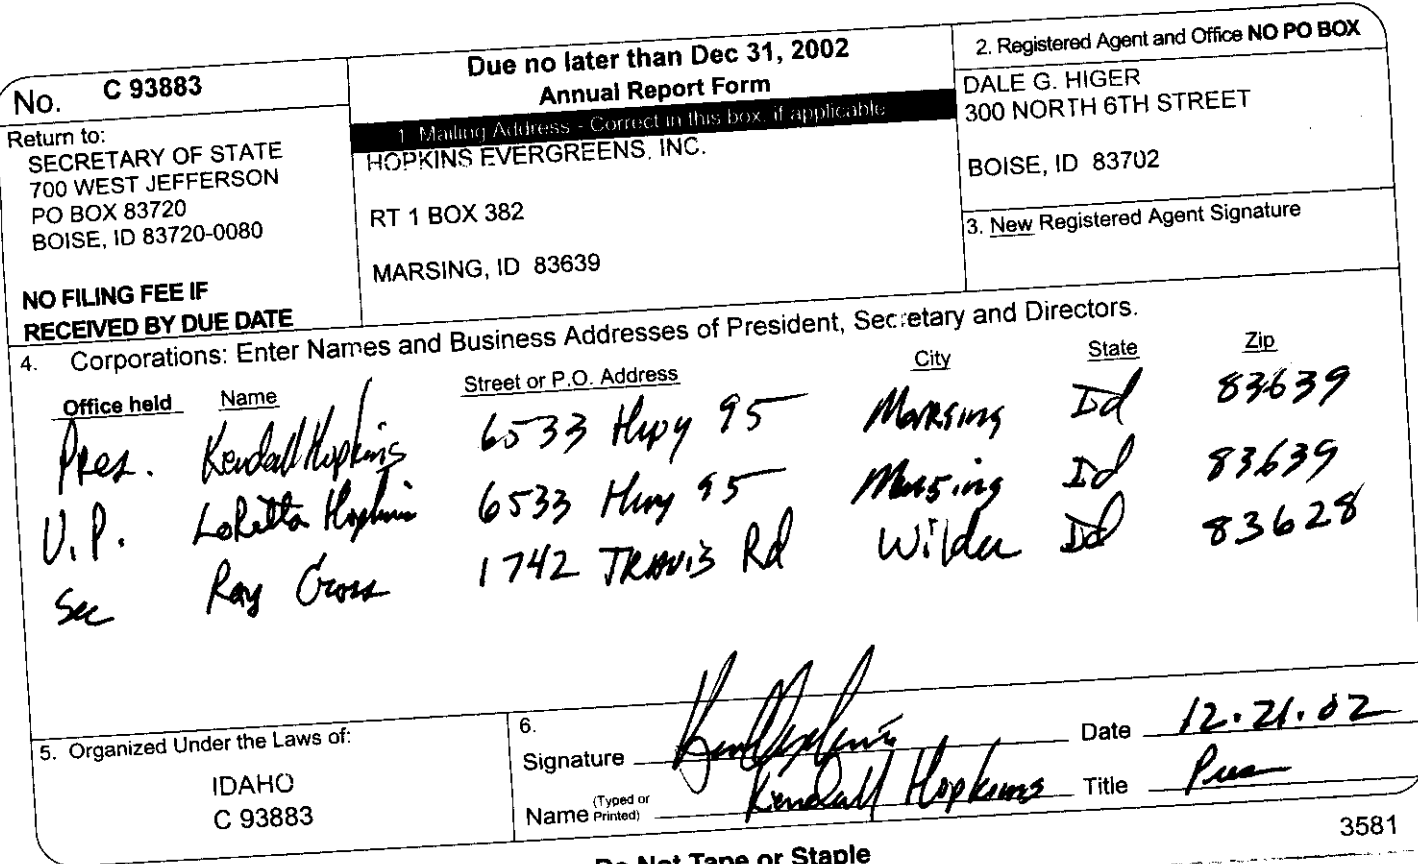 No. C 93883
Return to:
SECRETARY OF STATE
700 WEST JEFFERSON
PO BOX 83720
BOISE, ID 83720-0080
NO FILING FEE IF
RECEIVED BY DUE DATE
Due no later than Dec 31, 2002
Annual Report Form
1. Mailing Address - Correct in this box, if applicable
HOPKINS EVERGREENS, INC.
RT 1 BOX 382
MARSING, ID 83639
2. Registered Agent and Office NO PO BOX
DALE G. HIGER
300 NORTH 6TH STREET
BOISE, ID 83702
3. New Registered Agent Signature
4. Corporations: Enter Names and Business Addresses of President, Secretary and Directors.
Office held Name Street or P.O. Address City State Zip
Pres. Kendall Hopkins 6533 Hwy 95 Marsing Id 83639
V.P. LoRetta Hopkins 6533 Hwy 95 Marsing Id 83639
Sec Ray Gross 1742 TRAVIS Rd Wilder Id 83628
5. Organized Under the Laws of:
IDAHO
C 93883
6.
Signature Date 12.21.02
Name (Typed or Printed) Kendall Hopkins Title Pres
3581
Do Not Tape or Staple